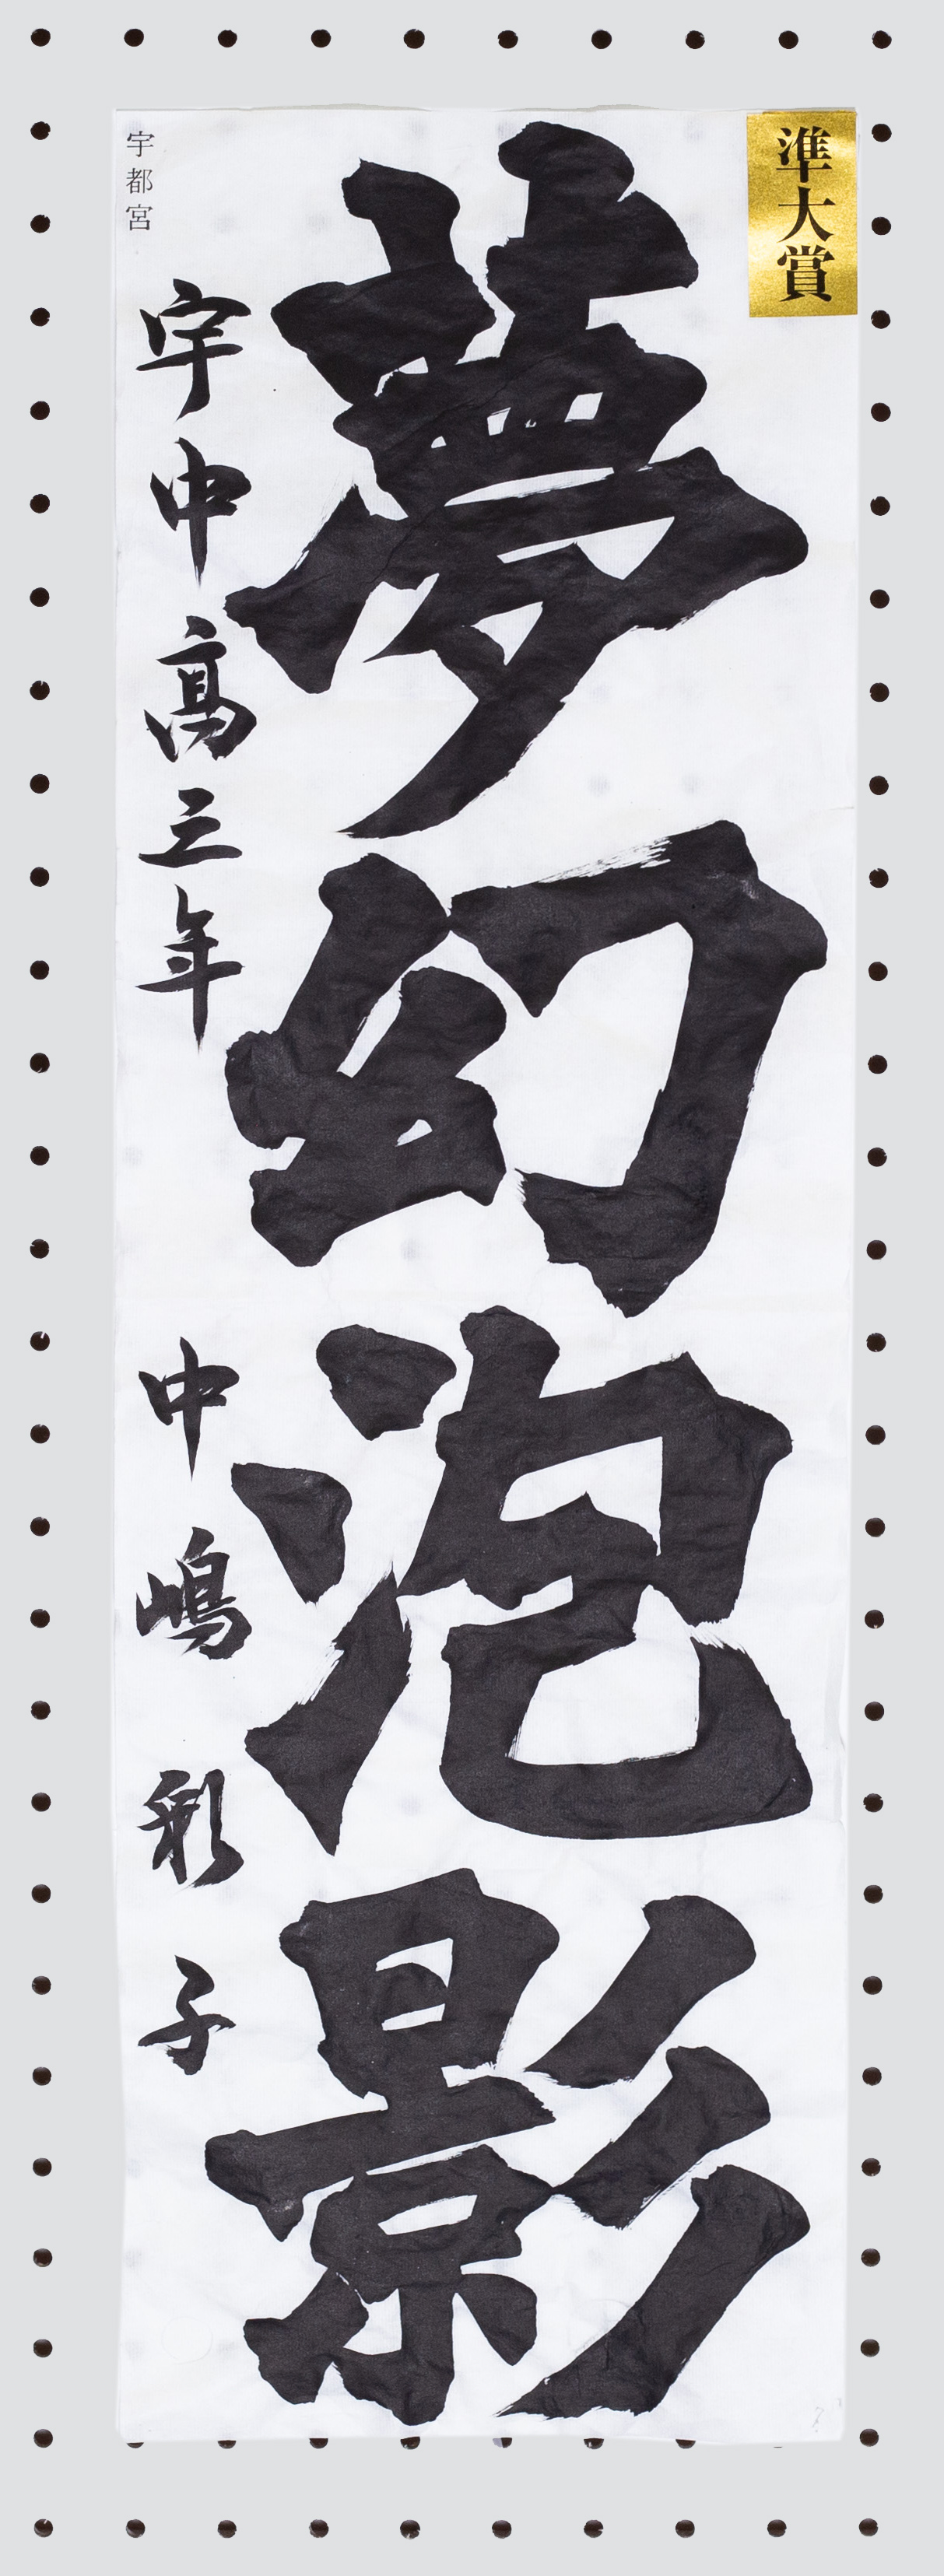 準大賞
夢幻泡影
宇都宮
宇中高三年
中嶋彩子